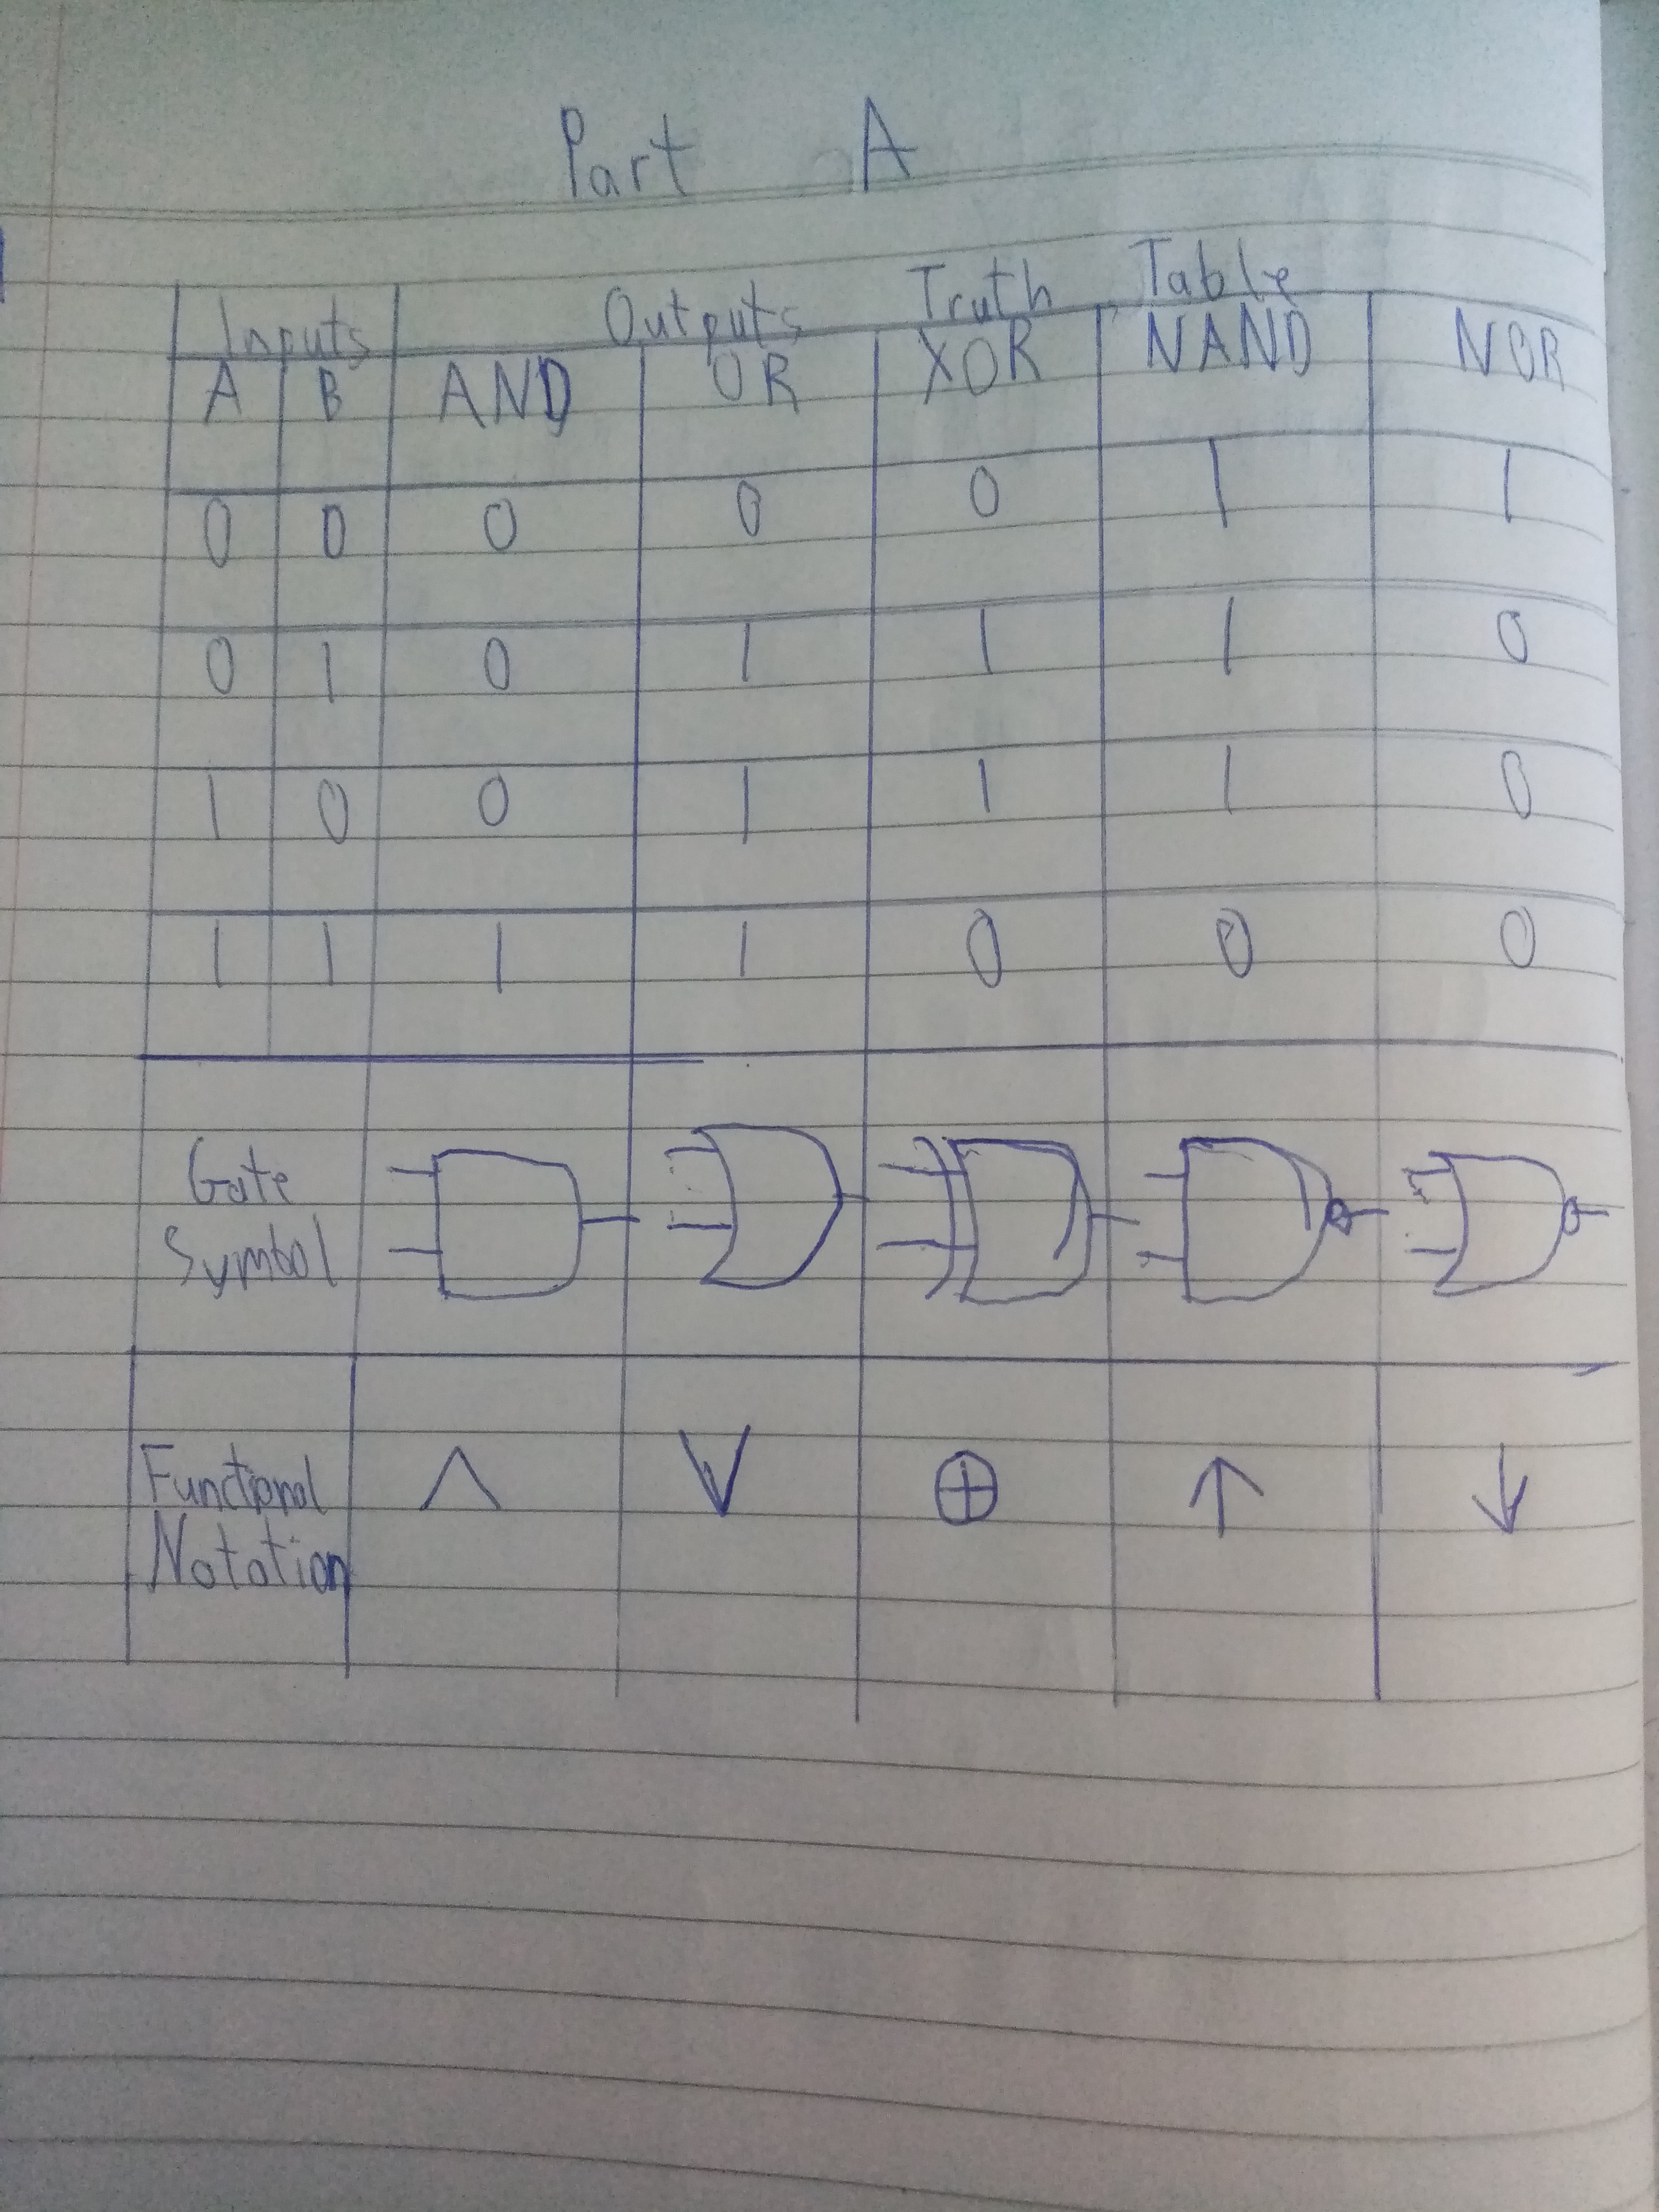 Part A
Inputs Outputs Truth Table
A B AND OR XOR NAND NOR
0 0 0 0 0 1 1
0 1 0 1 1 1 0
1 0 0 1 1 1 0
1 1 1 1 0 0 0
Gate
Symbol
Functional ∧ ∨ ⊕ ↑ ↓
Notation